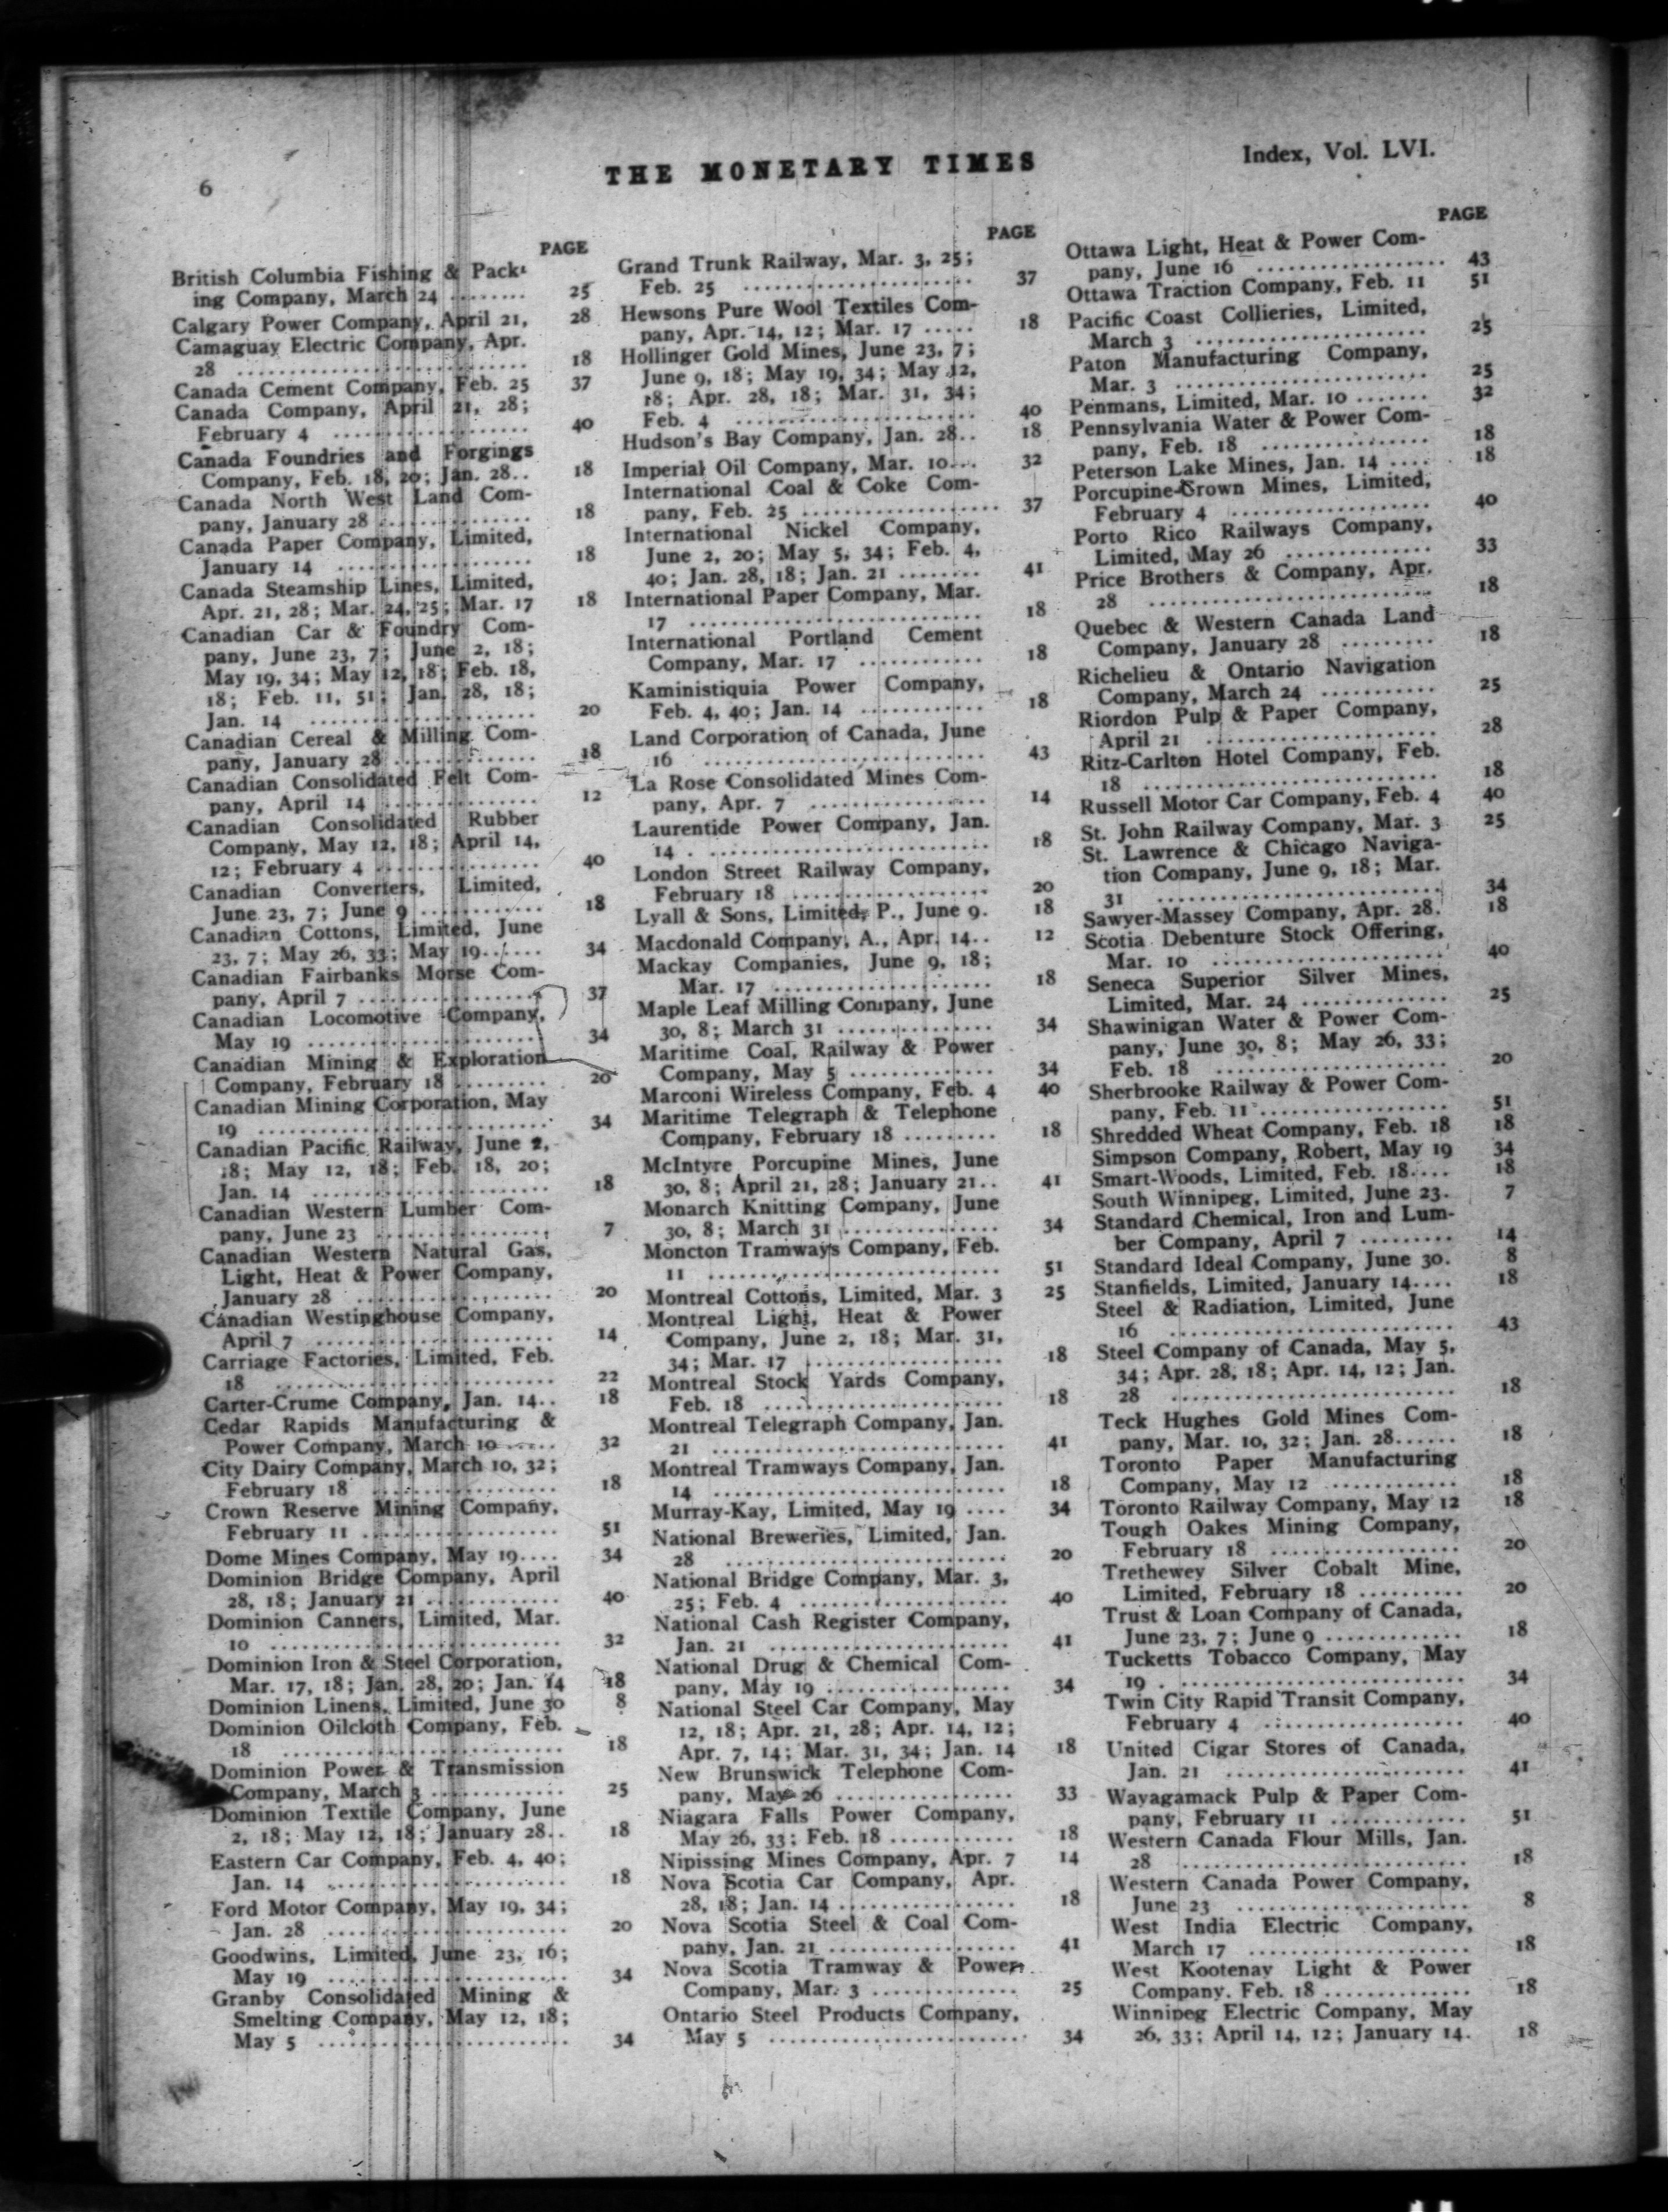 6
THE MONETARY TIMES
Index, Vol. LVI.
PAGE
British Columbia Fishing & Pack-
ing Company, March 24 ........ 25
Calgary Power Company, April 21, 28
Camaguay Electric Company, Apr.
28 ............................ 18
Canada Cement Company, Feb. 25 37
Canada Company, April 21, 28;
February 4 .................. 40
Canada Foundries and Forgings
Company, Feb. 18, 20; Jan. 28.. 18
Canada North West Land Com-
pany, January 28 .............. 18
Canada Paper Company, Limited,
January 14 .................. 18
Canada Steamship Lines, Limited,
Apr. 21, 28; Mar. 24, 25; Mar. 17 18
Canadian Car & Foundry Com-
pany, June 23, 7; June 2, 18;
May 19, 34; May 12, 18; Feb. 18,
18; Feb. 11, 51; Jan. 28, 18;
Jan. 14 ...................... 20
Canadian Cereal & Milling Com-
pany, January 28 .............. 18
Canadian Consolidated Felt Com-
pany, April 14 ................ 12
Canadian Consolidated Rubber
Company, May 12, 18; April 14,
12; February 4 ................ 40
Canadian Converters, Limited,
June 23, 7; June 9 ............ 18
Canadian Cottons, Limited, June
23, 7; May 26, 33; May 19...... 34
Canadian Fairbanks Morse Com-
pany, April 7 ................. 37
Canadian Locomotive Company,
May 19 ...................... 34
Canadian Mining & Exploration
Company, February 18 ......... 20
Canadian Mining Corporation, May
19 ............................ 34
Canadian Pacific Railway, June 2,
18; May 12, 18; Feb. 18, 20;
Jan. 14 ...................... 18
Canadian Western Lumber Com-
pany, June 23 ................. 7
Canadian Western Natural Gas,
Light, Heat & Power Company,
January 28 .................. 20
Canadian Westinghouse Company,
April 7 ...................... 14
Carriage Factories, Limited, Feb.
18 ............................ 22
Carter-Crume Company, Jan. 14.. 18
Cedar Rapids Manufacturing &
Power Company, March 10 ...... 32
City Dairy Company, March 10, 32;
February 18 .................. 18
Crown Reserve Mining Company,
February 11 .................. 51
Dome Mines Company, May 19.... 34
Dominion Bridge Company, April
28, 18; January 21 ............ 40
Dominion Canners, Limited, Mar.
10 ............................ 32
Dominion Iron & Steel Corporation,
Mar. 17, 18; Jan. 28, 20; Jan. 14 18
Dominion Linens, Limited, June 30 8
Dominion Oilcloth Company, Feb.
18 ............................ 18
Dominion Power & Transmission
Company, March 3 ............. 25
Dominion Textile Company, June
2, 18; May 12, 18; January 28.. 18
Eastern Car Company, Feb. 4, 40;
Jan. 14 ...................... 18
Ford Motor Company, May 19, 34;
Jan. 28 ...................... 20
Goodwins, Limited, June 23, 16;
May 19 ...................... 34
Granby Consolidated Mining &
Smelting Company, May 12, 18;
May 5 ........................ 34
PAGE
Grand Trunk Railway, Mar. 3, 25;
Feb. 25 ...................... 37
Hewsons Pure Wool Textiles Com-
pany, Apr. 14, 12; Mar. 17 ..... 18
Hollinger Gold Mines, June 23, 7;
June 9, 18; May 19, 34; May 12,
18; Apr. 28, 18; Mar. 31, 34;
Feb. 4 ....................... 40
Hudson's Bay Company, Jan. 28.. 18
Imperial Oil Company, Mar. 10... 32
International Coal & Coke Com-
pany, Feb. 25 .................. 37
International Nickel Company,
June 2, 20; May 5, 34; Feb. 4,
40; Jan. 28, 18; Jan. 21 ........ 41
International Paper Company, Mar.
17 ............................ 18
International Portland Cement
Company, Mar. 17 ............ 18
Kaministiquia Power Company,
Feb. 4, 40; Jan. 14 ............ 18
Land Corporation of Canada, June
16 ............................ 43
La Rose Consolidated Mines Com-
pany, Apr. 7 .................. 14
Laurentide Power Company, Jan.
14 ............................ 18
London Street Railway Company,
February 18 .................. 20
Lyall & Sons, Limited, P., June 9. 18
Macdonald Company, A., Apr. 14.. 12
Mackay Companies, June 9, 18;
Mar. 17 ...................... 18
Maple Leaf Milling Company, June
30, 8; March 31 ............... 34
Maritime Coal, Railway & Power
Company, May 5 .............. 34
Marconi Wireless Company, Feb. 4 40
Maritime Telegraph & Telephone
Company, February 18 ......... 18
McIntyre Porcupine Mines, June
30, 8; April 21, 28; January 21.. 41
Monarch Knitting Company, June
30, 8; March 31 ............... 34
Moncton Tramways Company, Feb.
11 ............................ 51
Montreal Cottons, Limited, Mar. 3 25
Montreal Light, Heat & Power
Company, June 2, 18; Mar. 31,
34; Mar. 17 ................... 18
Montreal Stock Yards Company,
Feb. 18 ...................... 18
Montreal Telegraph Company, Jan.
21 ............................ 41
Montreal Tramways Company, Jan.
14 ............................ 18
Murray-Kay, Limited, May 19 .... 34
National Breweries, Limited, Jan.
28 ............................ 20
National Bridge Company, Mar. 3,
25; Feb. 4 .................... 40
National Cash Register Company,
Jan. 21 ...................... 41
National Drug & Chemical Com-
pany, May 19 .................. 34
National Steel Car Company, May
12, 18; Apr. 21, 28; Apr. 14, 12;
Apr. 7, 14; Mar. 31, 34; Jan. 14 18
New Brunswick Telephone Com-
pany, May 26 .................. 33
Niagara Falls Power Company,
May 26, 33; Feb. 18 ............ 18
Nipissing Mines Company, Apr. 7 14
Nova Scotia Car Company, Apr.
28, 18; Jan. 14 ................ 18
Nova Scotia Steel & Coal Com-
pany, Jan. 21 .................. 41
Nova Scotia Tramway & Power
Company, Mar. 3 .............. 25
Ontario Steel Products Company,
May 5 ........................ 34
PAGE
Ottawa Light, Heat & Power Com-
pany, June 16 .................. 43
Ottawa Traction Company, Feb. 11 51
Pacific Coast Collieries, Limited,
March 3 ...................... 25
Paton Manufacturing Company,
Mar. 3 ........................ 25
Penmans, Limited, Mar. 10 ....... 32
Pennsylvania Water & Power Com-
pany, Feb. 18 ................. 18
Peterson Lake Mines, Jan. 14 .... 18
Porcupine-Crown Mines, Limited,
February 4 ................... 40
Porto Rico Railways Company,
Limited, May 26 .............. 33
Price Brothers & Company, Apr.
28 ............................ 18
Quebec & Western Canada Land
Company, January 28 ......... 18
Richelieu & Ontario Navigation
Company, March 24 ........... 25
Riordon Pulp & Paper Company,
April 21 ...................... 28
Ritz-Carlton Hotel Company, Feb.
18 ............................ 18
Russell Motor Car Company, Feb. 4 40
St. John Railway Company, Mar. 3 25
St. Lawrence & Chicago Naviga-
tion Company, June 9, 18; Mar.
31 ............................ 34
Sawyer-Massey Company, Apr. 28. 18
Scotia Debenture Stock Offering,
Mar. 10 ...................... 40
Seneca Superior Silver Mines,
Limited, Mar. 24 .............. 25
Shawinigan Water & Power Com-
pany, June 30, 8; May 26, 33;
Feb. 18 ...................... 20
Sherbrooke Railway & Power Com-
pany, Feb. 11 .................. 51
Shredded Wheat Company, Feb. 18 18
Simpson Company, Robert, May 19 34
Smart-Woods, Limited, Feb. 18.... 18
South Winnipeg, Limited, June 23. 7
Standard Chemical, Iron and Lum-
ber Company, April 7 ......... 14
Standard Ideal Company, June 30. 8
Stanfields, Limited, January 14.... 18
Steel & Radiation, Limited, June
16 ............................ 43
Steel Company of Canada, May 5,
34; Apr. 28, 18; Apr. 14, 12; Jan.
28 ............................ 18
Teck Hughes Gold Mines Com-
pany, Mar. 10, 32; Jan. 28...... 18
Toronto Paper Manufacturing
Company, May 12 ............. 18
Toronto Railway Company, May 12 18
Tough Oakes Mining Company,
February 18 .................. 20
Trethewey Silver Cobalt Mine,
Limited, February 18 .......... 20
Trust & Loan Company of Canada,
June 23, 7; June 9 ............. 18
Tucketts Tobacco Company, May
19 ............................ 34
Twin City Rapid Transit Company,
February 4 ................... 40
United Cigar Stores of Canada,
Jan. 21 ...................... 41
Wayagamack Pulp & Paper Com-
pany, February 11 ............. 51
Western Canada Flour Mills, Jan.
28 ............................ 18
Western Canada Power Company,
June 23 ...................... 8
West India Electric Company,
March 17 ..................... 18
West Kootenay Light & Power
Company, Feb. 18 .............. 18
Winnipeg Electric Company, May
26, 33; April 14, 12; January 14. 18